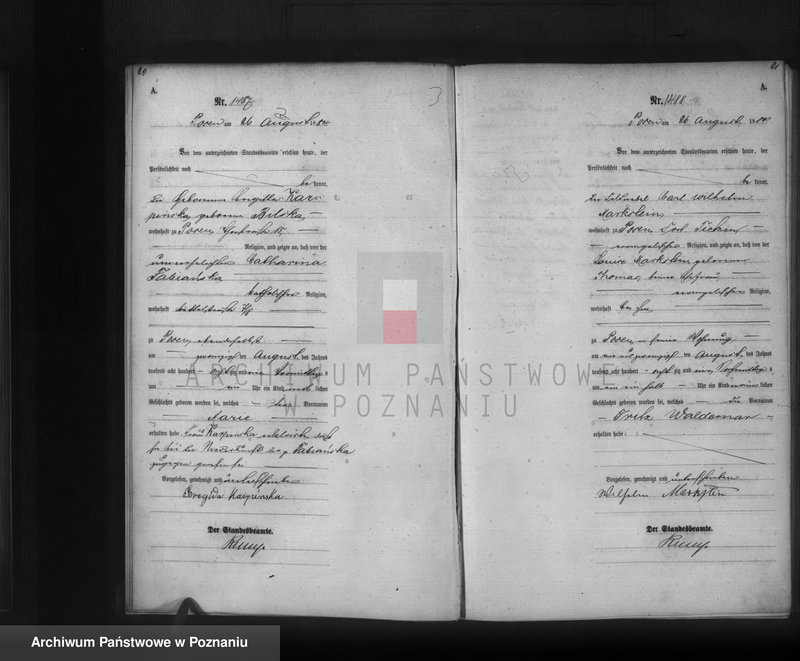 20
A.
Nr. 1487
Posen am 26 August 1884
Vor dem unterzeichneten Standesbeamten erschien heute, der
Persönlichkeit nach
be kannt,
die Hebamme Brigitta Kar-
pinska, geborene Bilska,
wohnhaft zu Posen,
Religion, und zeigte an, daß von der
unverehelichten Catharina
Fabianska
katholischer Religion,
wohnhaft
zu Posen ebendaselbst
am ten August des Jahres
tausend acht hundert achtzig und vier Vormittags
um Uhr ein Kind weib lichen
Geschlechts geboren worden sei, welches den Vornamen
Marie
erhalten habe. Frau Karpinska erklärte, daß
sie bei der Niederkunft der p. Fabiańska
zugegen gewesen sei
Vorgelesen, genehmigt und unterschrieben
Bregida Karpinska
Der Standesbeamte.
21
A.
Nr. 1488
Posen am 26 August 1884
Vor dem unterzeichneten Standesbeamten erschien heute, der
Persönlichkeit nach
be kannt,
der Feldwebel Carl Wilhelm
Markstein,
wohnhaft zu Posen, Fort Tietzen
evangelischer Religion, und zeigte an, daß von der
Louise Markstein geborenen
Thomas, seiner Ehefrau
evangelischer Religion,
wohnhaft bei ihm,
zu Posen in seiner Wohnung
am vierundzwanzig ten August des Jahres
tausend acht hundert achtzig und vier Vormittags
um ein halb Uhr ein Kind männ lichen
Geschlechts geboren worden sei, welches die Vornamen
Fritz Waldemar
erhalten habe.
Vorgelesen, genehmigt und unterschrieben
Wilhelm Markstein
Der Standesbeamte.
ARCHIWUM PAŃSTWOWE
W POZNANIU
Archiwum Państwowe w Poznaniu